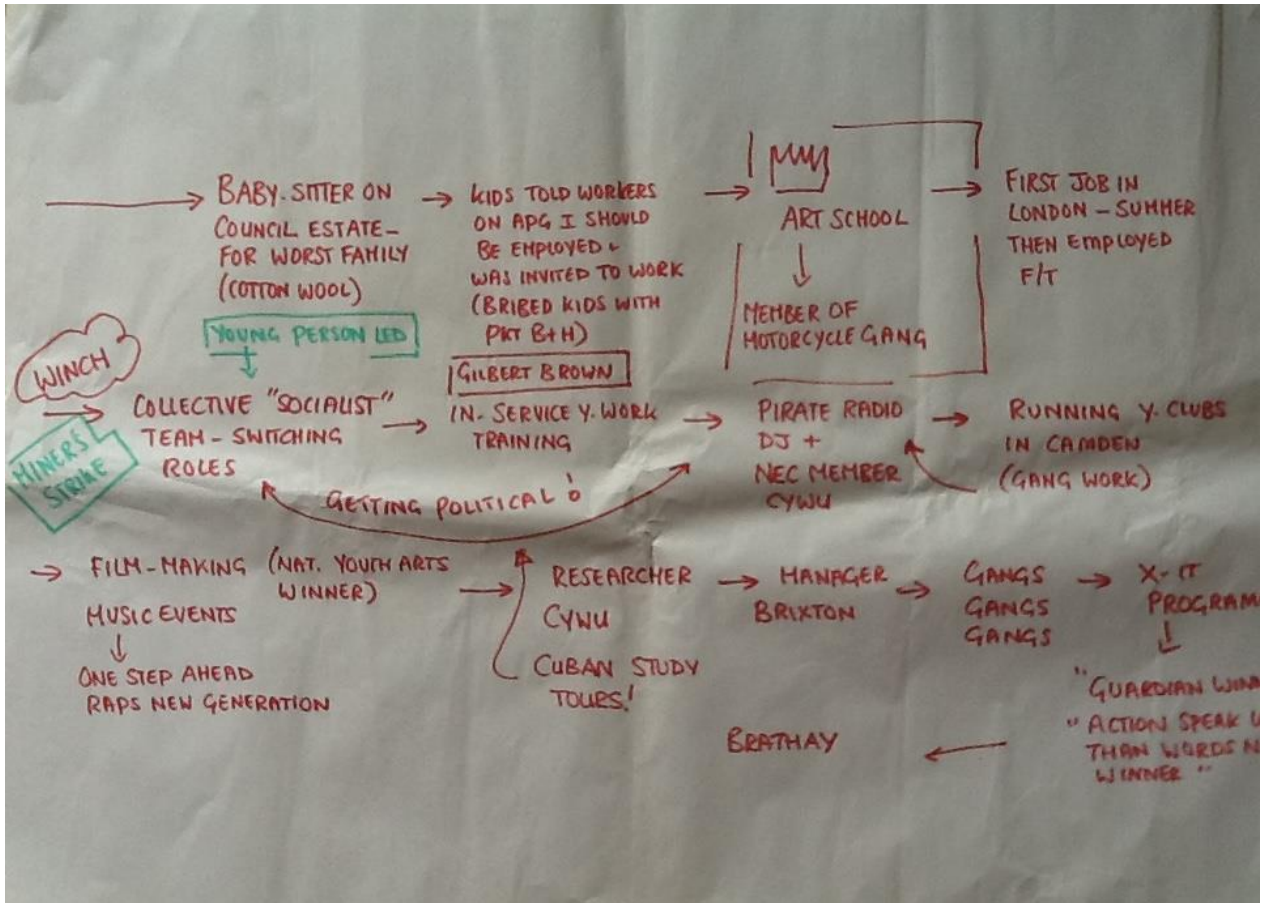 BABY-SITTER ON
COUNCIL ESTATE-
FOR WORST FAMILY
(COTTON WOOL)
YOUNG PERSON LED
KIDS TOLD WORKERS
ON APG I SHOULD
BE EMPLOYED &
WAS INVITED TO WORK
(BRIBED KIDS WITH
PKT B+H)
GILBERT BROWN
ART SCHOOL
MEMBER OF
MOTORCYCLE GANG
FIRST JOB IN
LONDON - SUMMER
THEN EMPLOYED
F/T
WINCH
MINERS
STRIKE
COLLECTIVE "SOCIALIST"
TEAM - SWITCHING
ROLES
IN-SERVICE Y. WORK
TRAINING
PIRATE RADIO
DJ +
NEC MEMBER
CYWU
RUNNING Y. CLUBS
IN CAMDEN
(GANG WORK)
GETTING POLITICAL!
FILM-MAKING (NAT. YOUTH ARTS
WINNER)
MUSIC EVENTS
ONE STEP AHEAD
RAPS NEW GENERATION
RESEARCHER
CYWU
CUBAN STUDY
TOURS!
MANAGER
BRIXTON
GANGS
GANGS
GANGS
X-IT
PROGRAM
"GUARDIAN WINN
"ACTION SPEAK
THAN WORDS N
WINNER"
BRATHAY